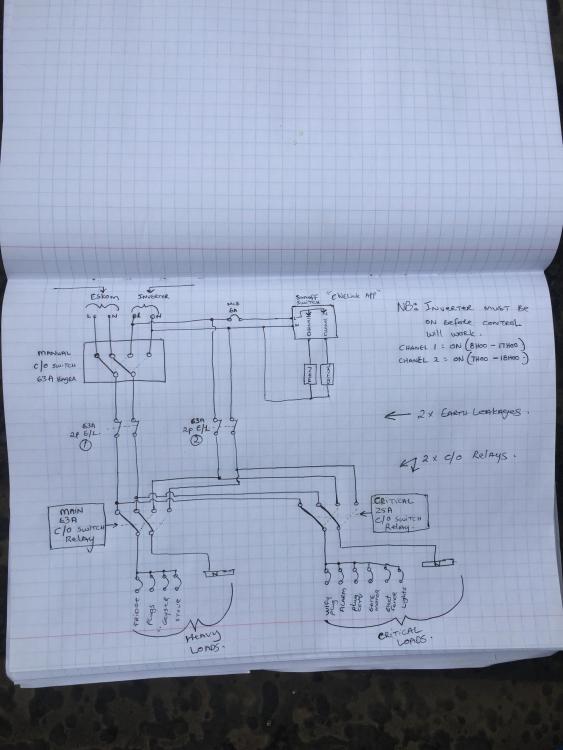 ESKOM
INVERTER
L N
N
MCB
6A
SONOFF
SWITCH
"EWELINK APP"
MANUAL
C/O SWITCH
63A
CHANNEL 1
MAIN
NB: INVERTER MUST BE
ON BEFORE CONTROL
WILL WORK.
CHANEL 1 = ON (8H00 - 17H00)
CHANEL 2 = ON (7H00 - 18H00)
63A
2P E/L
1
63A
2P E/L
2
← 2 x EARTH LEAKAGES.
2 x C/O RELAYS.
MAIN
63A
C/O SWITCH
RELAY
CRITICAL
25A
C/O SWITCH
RELAY.
N
N
FRIDGE
PLUGS
GEYSER
STOVE
WIFI PLUG
ALARM
PLUG
GATE MOTOR
LIGHTS
HEAVY
LOADS.
CRITICAL
LOADS.